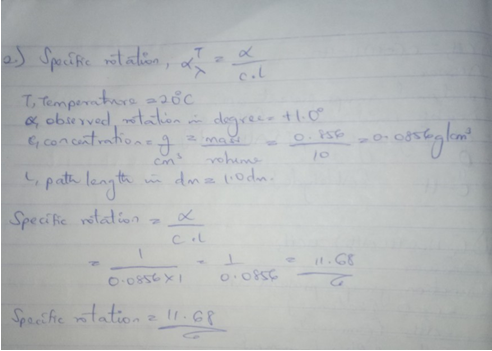 2.) Specific rotation, α^T_λ = α / c.l
T, Temperature = 20°C
α, observed rotation in degree = +1.0°
c, concentration = g / cm³ = mass / volume = 0.856 / 10 = 0.0856 g/cm³
l, path length in dm = 1.0dm.
Specific rotation = α / c.l
= 1 / 0.0856 × 1 = 1 / 0.0856 = 11.68
Specific rotation = 11.68